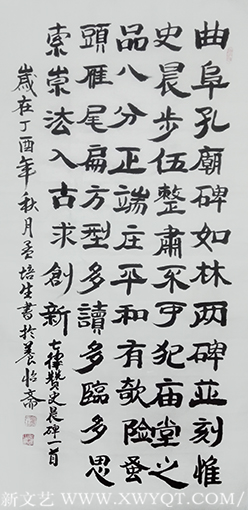 曲阜孔廟碑如林两碑並刻惟
史晨步伍整肅不可犯庙堂之
品八分正端庄平和有欹险蚕
頭雁尾扁方型多讀多臨多思
索崇法入古求創新 七律贊史晨碑一首
歲在丁酉年秋月孟培生書於養怡齋
新文艺 WWW.XWYQT.COM